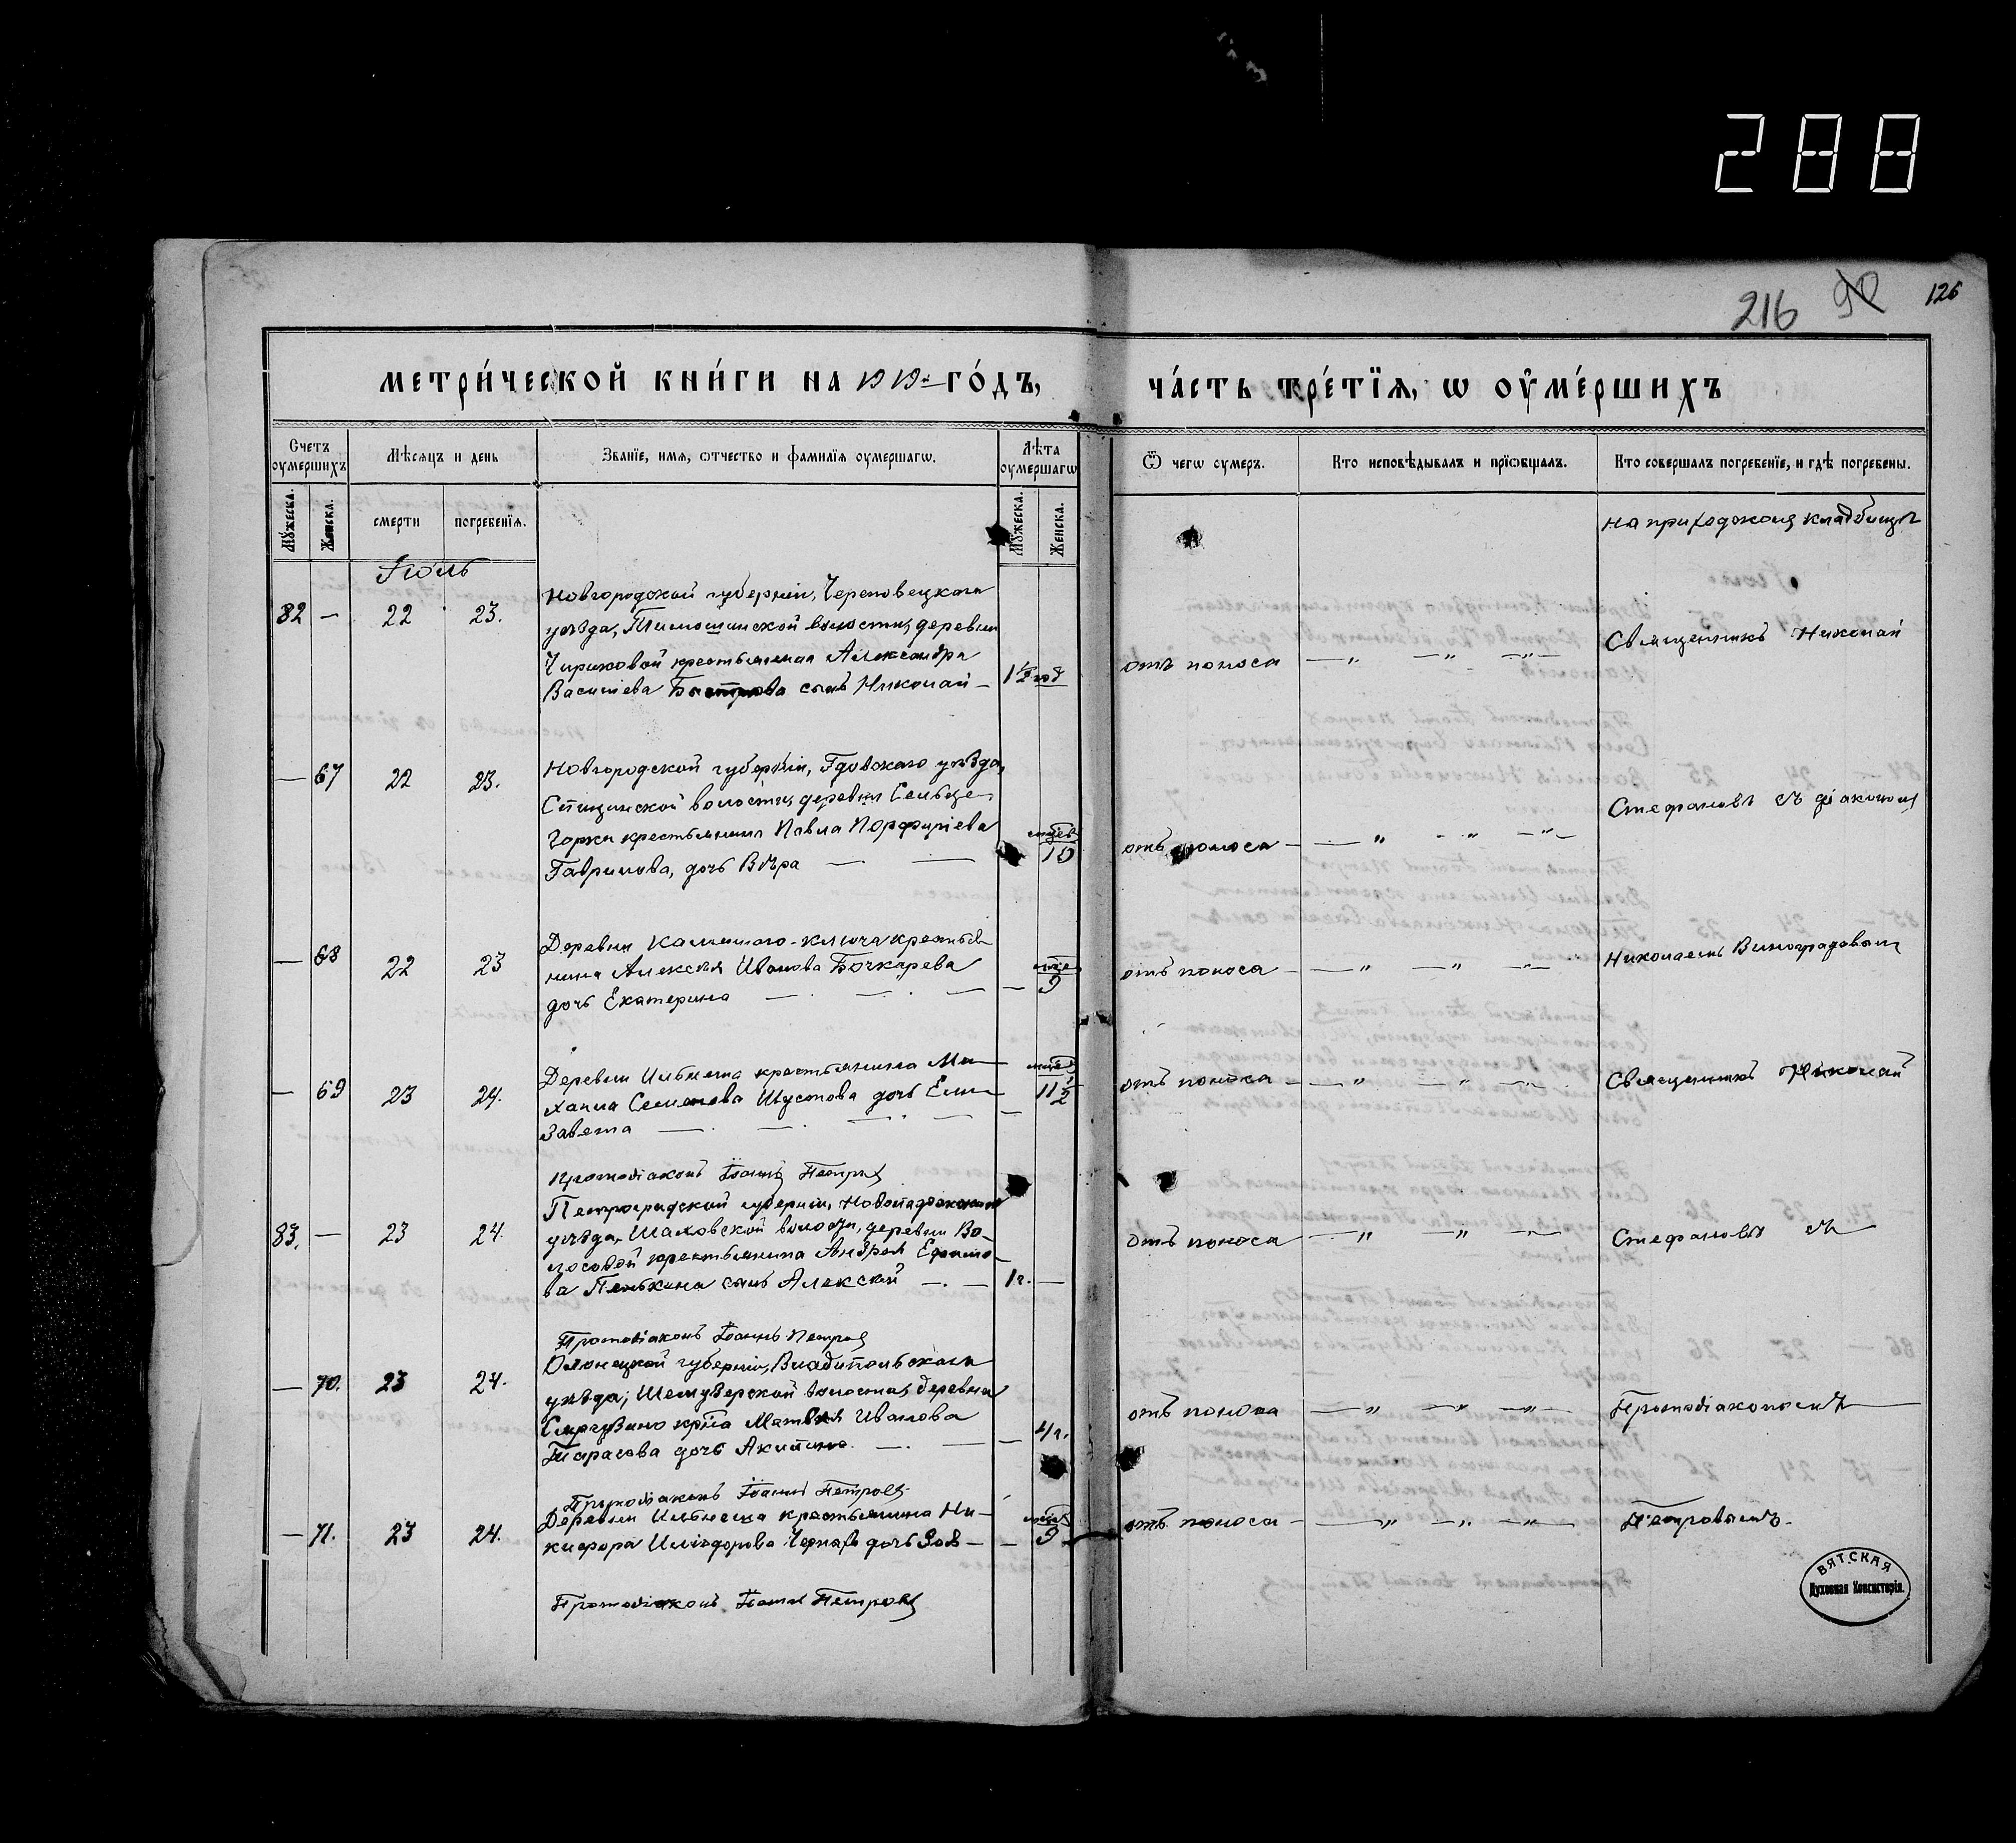 288
216 90 126
МЕТРИ́ЧЕСКОЙ КНИ́ГИ НА 1919 ГО́ДЪ, ЧА́СТЬ ТРЕ́ТЇѦ, Ѡ ОУ҆МЕ́РШИХЪ
Счетъ оумершихъ
Мѣсяцъ и день
Званїе, имя, ѿчество и фамилїя оумершагѡ.
Лѣта оумершагѡ
Ѿ чегѡ оумеръ.
Кто исповѣдывалъ и прїѡбщалъ.
Кто совершалъ погребенїе, и гдѣ погребены.
Мужеска.
Женска.
смерти
погребенїя.
Мужеска.
Женска.
на приходском кладбищѣ
Іюль
82 — 22 23.
Новгородской губерніи, Череповецкаго
уѣзда, Тимошинской волости, деревни
Чириковой крестьянина Александра
Васильева Быстрова сынъ Николай —
1½ год
отъ поноса — „ — „ — „ —
Священникъ Николай
— 67 22 23.
Новгородской губерніи, Гдовскаго уѣзда,
Спицинской волости, деревни Сельце-
Горка крестьянина Павла Порфиріева
Гаврилова, дочь Вѣра — —
мѣсяцев 10
отъ поноса — — „ — „ — „ —
Стефановъ съ діакономъ
— 68 22 23
Деревни Каменнаго-ключа крестья-
нина Алексѣя Иванова Бочкарева
дочь Екатерина — . — . —
— 9
отъ поноса — — „ — „ — „ —
Николаемъ Виноградовым
— 69 23 24.
Деревни Ильнеша крестьянина Ми-
хаила Семенова Шустова дочь Ели-
завета — . — . — . —
— 11½
отъ поноса — — „ — „ — „ —
Священникъ Николай
Протодіаконъ Іоаннъ Петровъ
83. — 23 24.
Петроградской губерніи, Новоладожскаго
уѣзда, Шаховской волости, деревни Во-
лосовой крестьянина Андрея Едомо-
ва Пенькина сынъ Алексѣй — . —
1 г. —
отъ поноса — „ — „ — „ —
Стефановъ съ —
Протодіаконъ Іоаннъ Петровъ
— 70. 23 24.
Олонецкой губерніи,
уѣзда, волости, деревни
кр-на Матвѣя Иванова
Тарасова дочь Акилина. — . —
— 4 г.
отъ поноса — „ — „ — „ —
Протодіакономъ —
Протодіаконъ Іоаннъ Петровъ
— 71. 23 24.
Деревни Ильнеша крестьянина Ни-
кифора Иліодорова дочь Зоя —
— 9
отъ поноса — — „ — „ — „ —
Петровымъ.
Протодіаконъ Іоаннъ Петровъ
ВЯТСКАЯ
Духовная Консисторія.